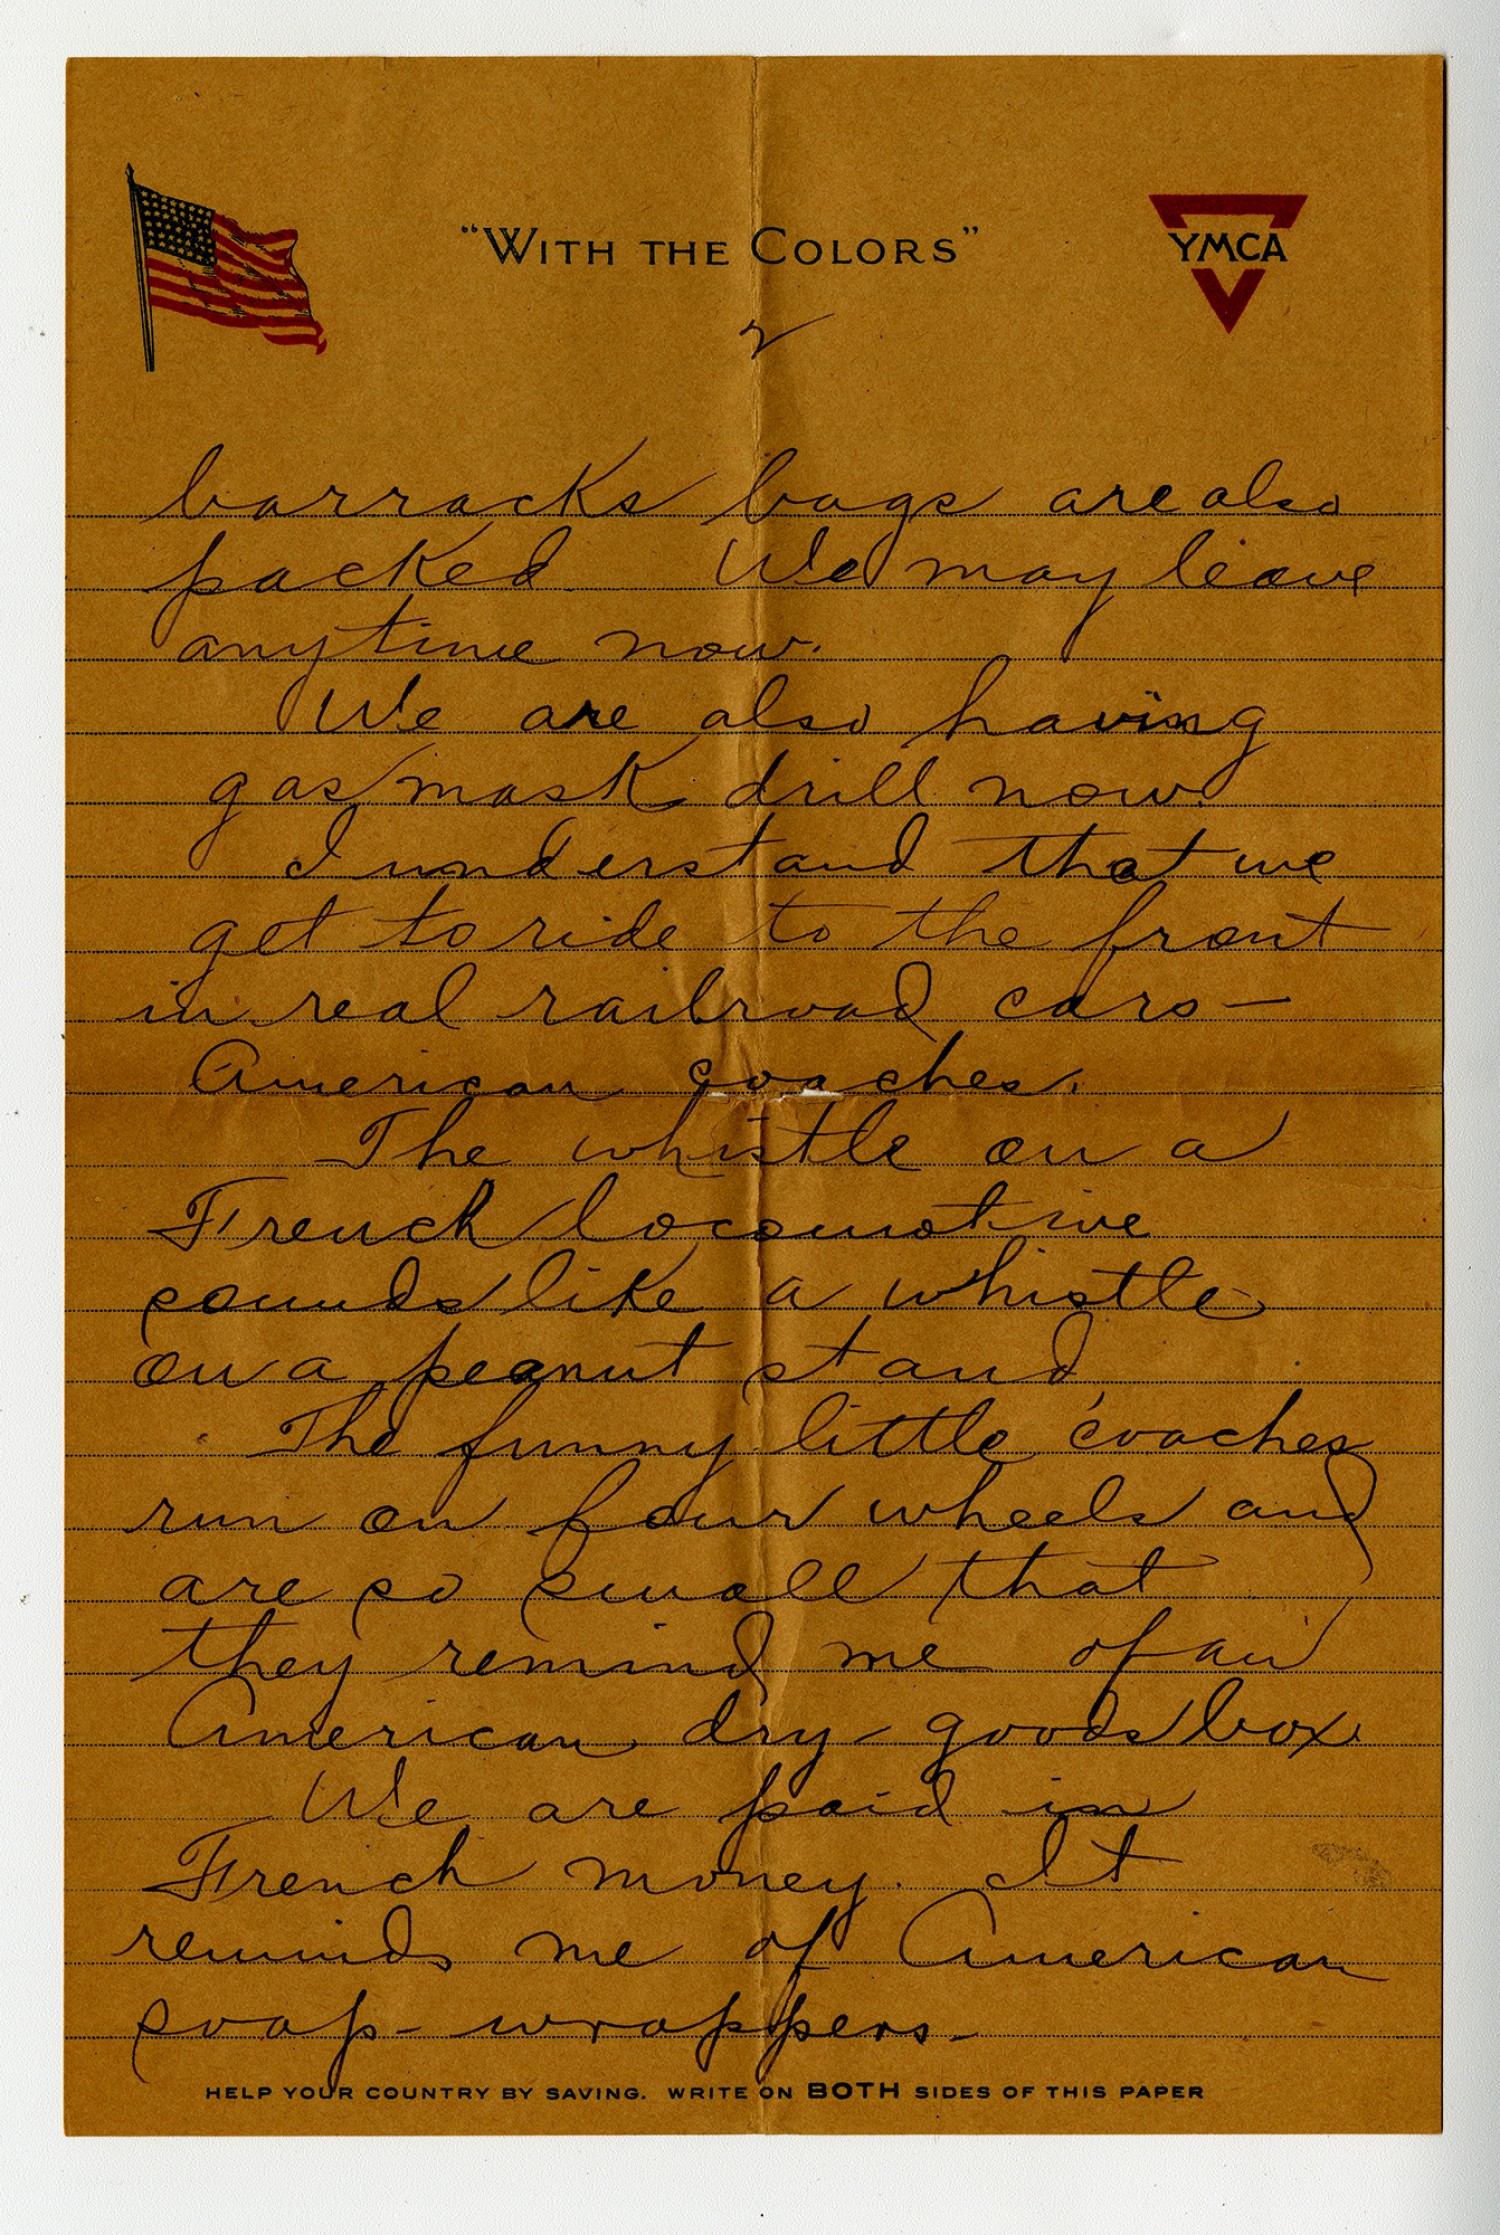 "WITH THE COLORS"
YMCA
2
barracks bags are also
packed. We may leave
anytime now.
We are also having
gas mask drill now.
I understand that we
get to ride to the front
in real railroad cars—
American coaches.
The whistle on a
French locomotive
sounds like a whistle
on a peanut stand.
The funny little coaches
run on four wheels and
are so small that
they remind me of an
American dry-goods box.
We are paid in
French money. It
reminds me of American
soap-wrappers—
HELP YOUR COUNTRY BY SAVING. WRITE ON BOTH SIDES OF THIS PAPER